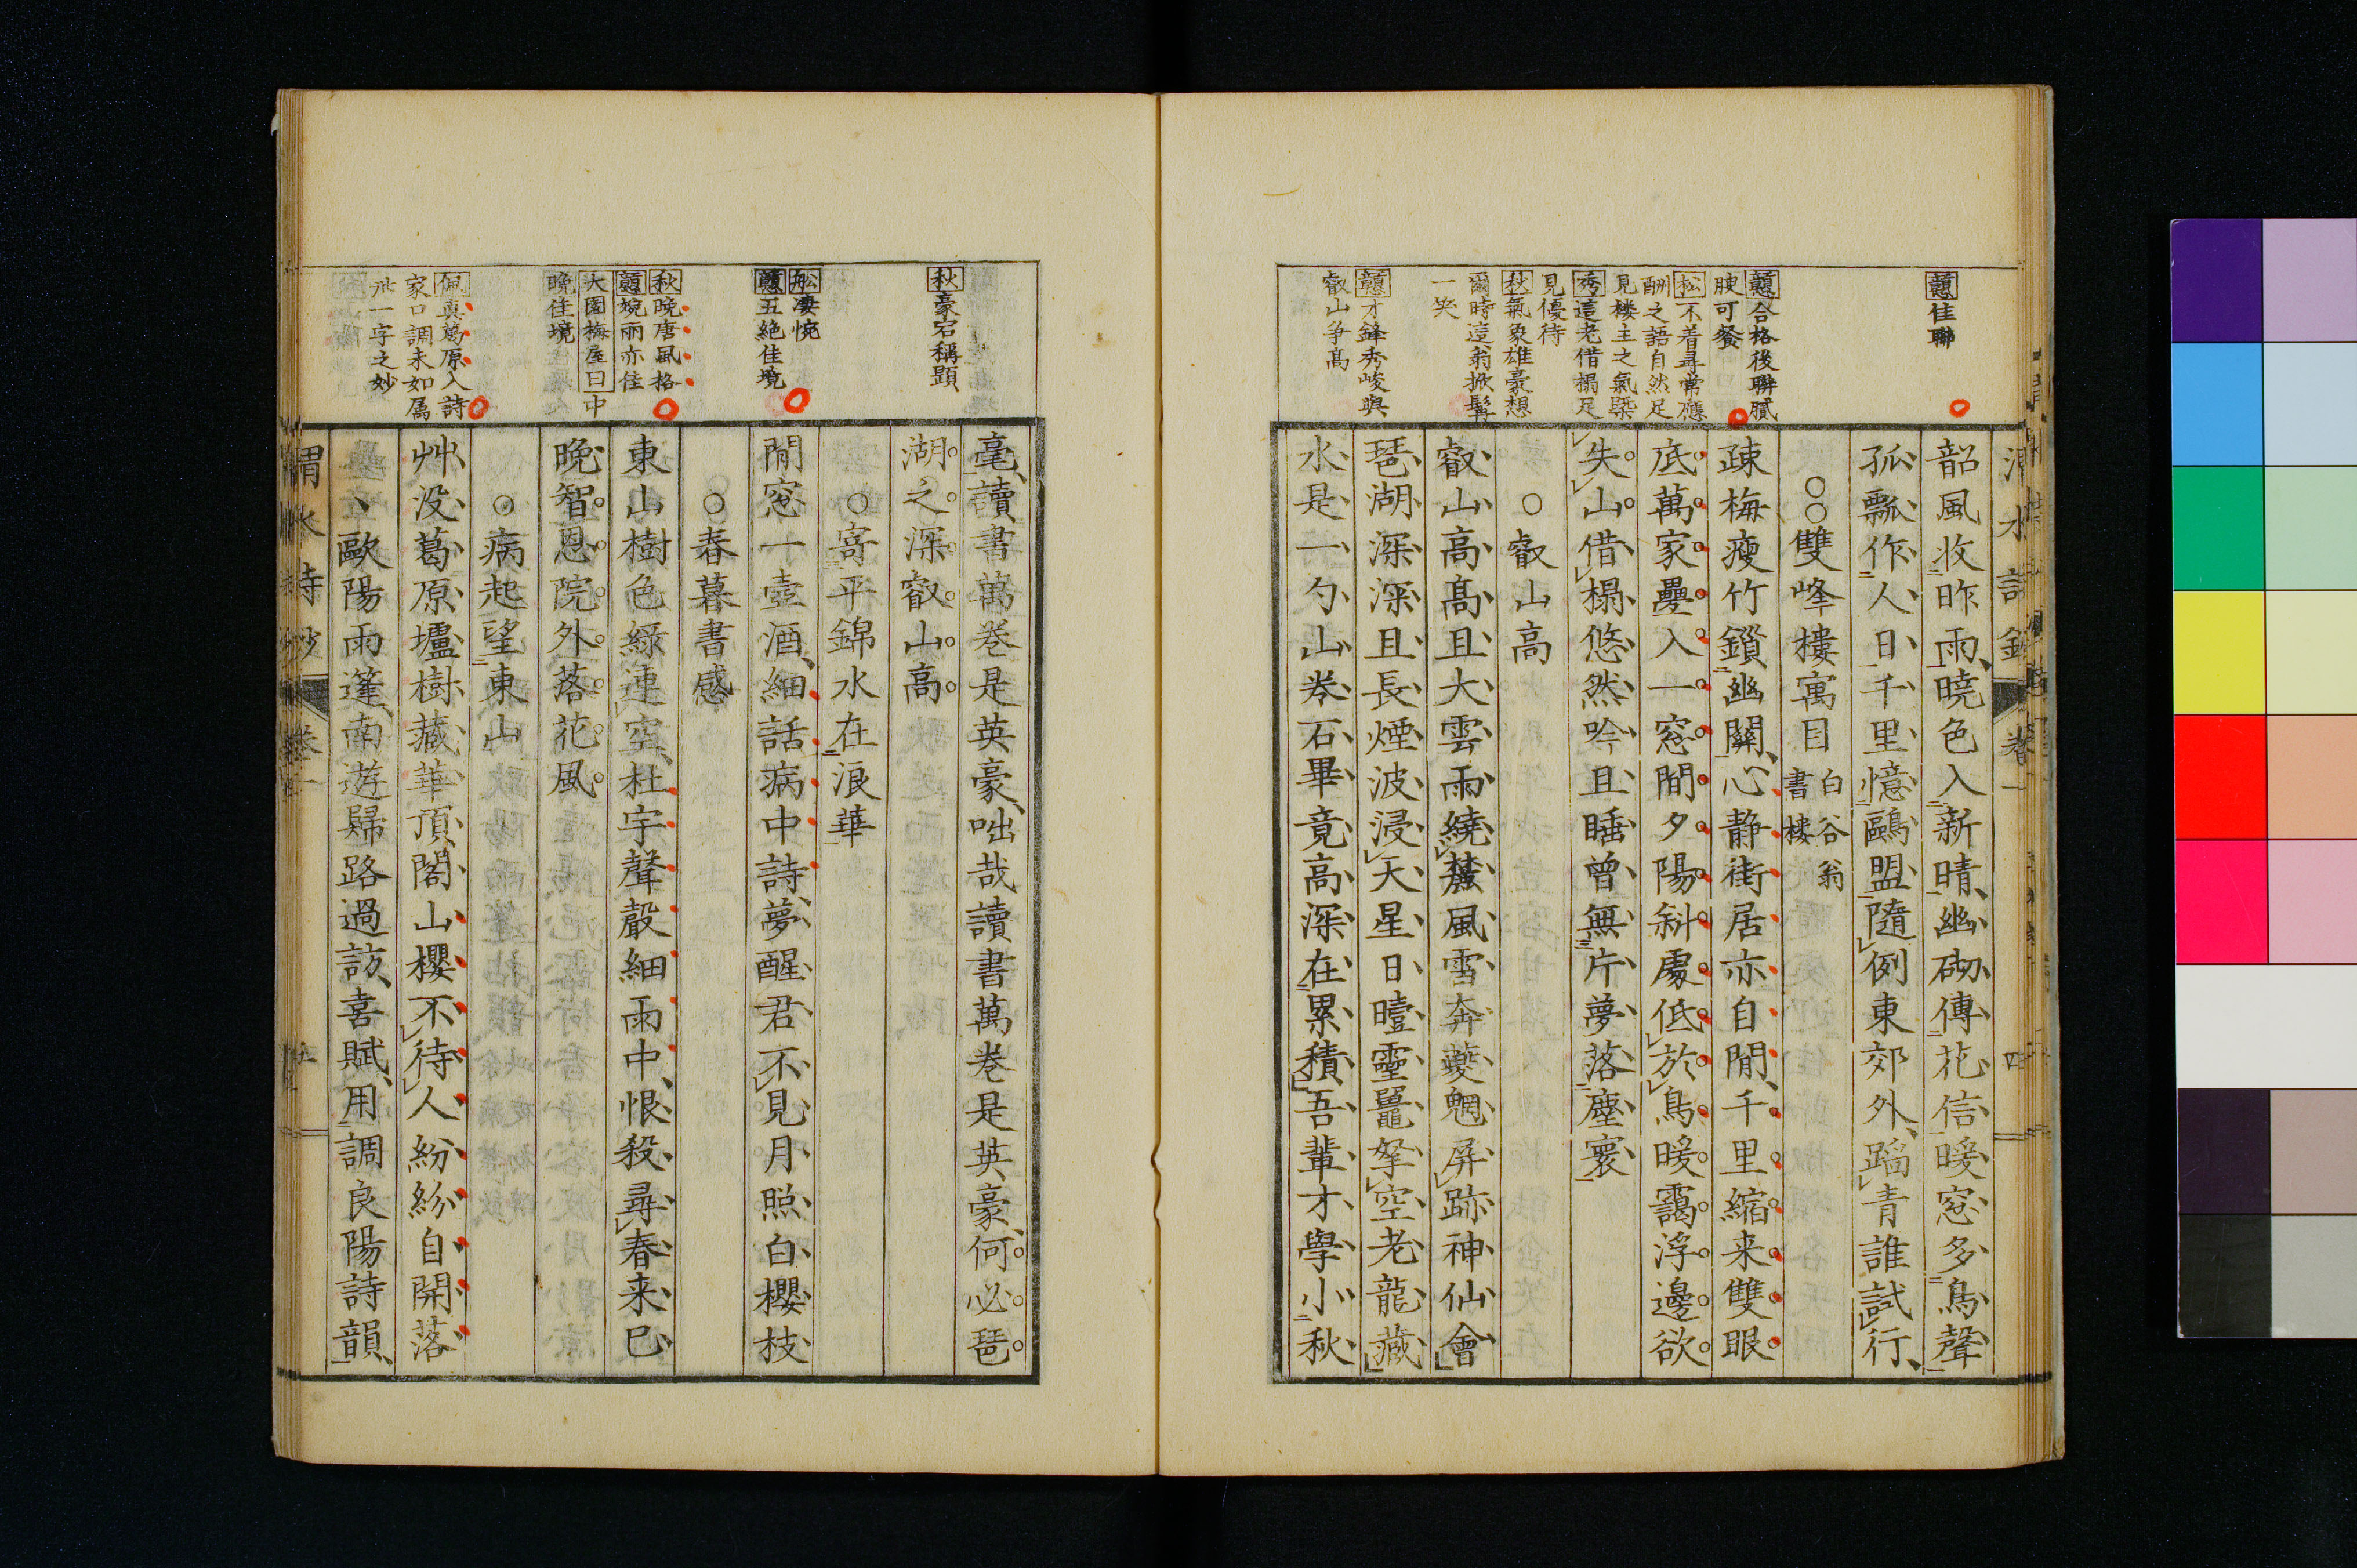 渭水詩鈔 卷一 四
韶風收昨雨曉色入新晴幽砌傳花信暖窓多鳥聲
孤瓢作人日千里憶鷗盟隨例東郊外蹈青誰試行
○○雙峰樓寓目 白谷翁
書樓
疎梅瘦竹鎖幽關心静街居亦自閒千里縮来雙眼
底萬家疊入一窓間夕陽斜處低於鳥暖靄浮邊欲
失山借榻悠然吟且睡曾無片夢落塵寰
○叡山高
叡山高高且大雲雨繞麓風雪奔夔魍屏跡神仙會
琶湖深深且長煙波浸天星日曀靈鼉拏空老龍藏
水是一勺山拳石畢竟高深在累積吾輩才學小秋
戇佳聯
戇合格後聯膩
腴可餐
松不着尋常應
酬之語自然足
見楼主之氣槩
秀這老借榻足
見優待
秋氣象雄豪想
爾時這翁掀髯
一笑
戇才鋒秀峻與
叡山争高
毫讀書萬卷是英豪咄哉讀書萬卷是英豪何必琶
湖之深叡山高
○寄平錦水在浪華
閒窓一壺酒細話病中詩夢醒君不見月照白櫻枝
○春暮書感
東山樹色綠連空杜宇聲聲細雨中恨殺尋春来已
晚智恩院外落花風
○病起望東山
艸没葛原壚樹藏華頂閣山櫻不待人紛紛自開落
歐陽雨篷南遊歸路過訪喜賦用調良陽詩韻
渭水詩鈔 卷一 五
秋豪宕稱題
舩凄惋
戇五絶佳境
秋晩唐風格
戇婉而亦佳
大園梅屋曰中
晩佳境
佩真葛原入詩
家口調未如属
爿一字之妙